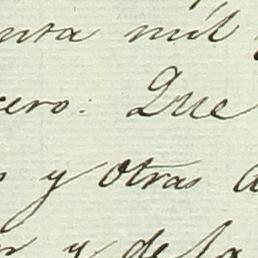 nta mil
cero: Que
s y otras
y de la